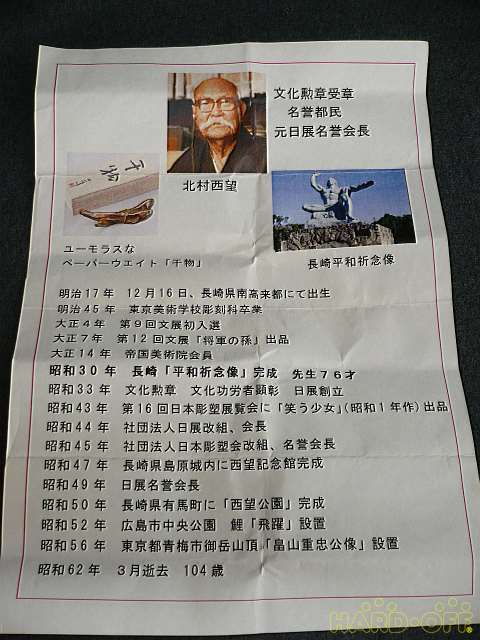 文化勲章受章
名誉都民
元日展名誉会長
干物
北村西望
ユーモラスな
ペーパーウエイト「干物」
長崎平和祈念像
明治17年 12月16日、長崎県南高来郡にて出生
明治45年 東京美術学校彫刻科卒業
大正4年 第9回文展初入選
大正7年 第12回文展「将軍の孫」出品
大正14年 帝国美術院会員
昭和30年 長崎「平和祈念像」完成 先生76才
昭和33年 文化勲章 文化功労者顕彰 日展創立
昭和43年 第16回日本彫塑展覧会に「笑う少女」(昭和1年作)出品
昭和44年 社団法人日展改組、会長
昭和45年 社団法人日本彫塑会改組、名誉会長
昭和47年 長崎県島原城内に西望記念館完成
昭和49年 日展名誉会長
昭和50年 長崎県有馬町に「西望公園」完成
昭和52年 広島市中央公園 鯉「飛躍」設置
昭和56年 東京都青梅市御岳山頂「畠山重忠公像」設置
昭和62年 3月逝去 104歳
HARD・OFF